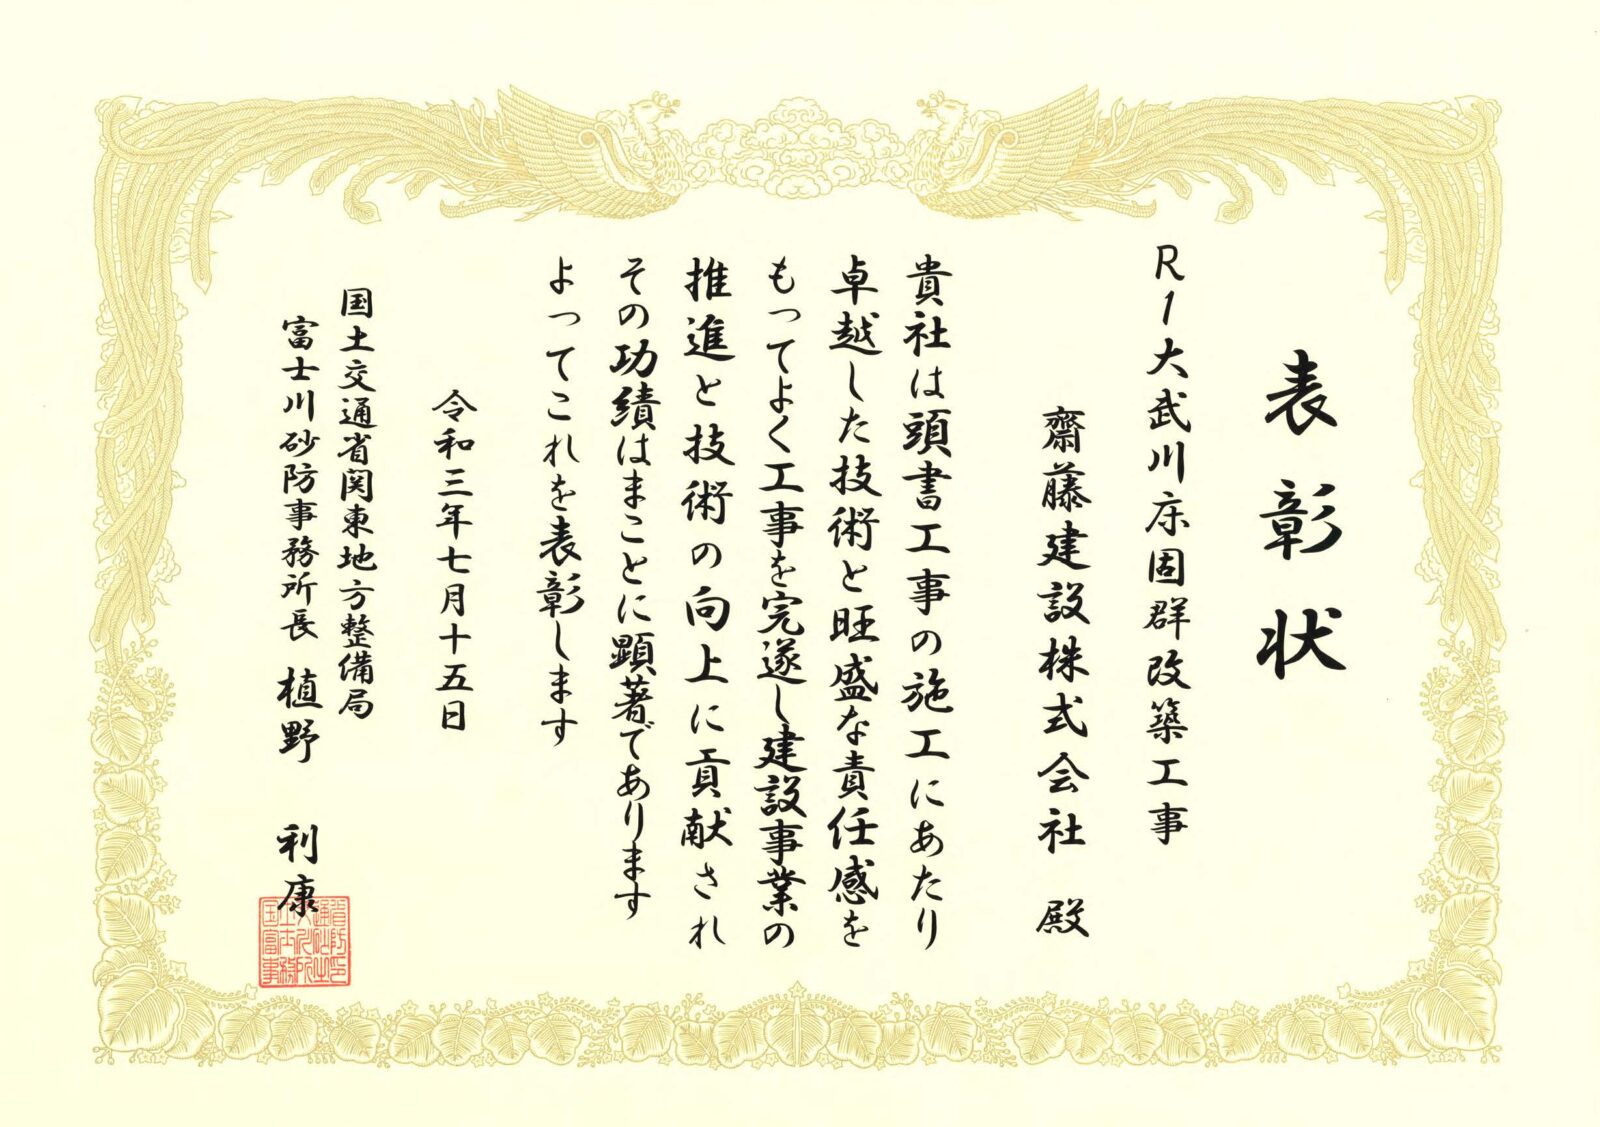 表彰状
R1大武川床固群改築工事
齋藤建設株式会社 殿
貴社は頭書工事の施工にあたり
卓越した技術と旺盛な責任感を
もってよく工事を完遂し建設事業の
推進と技術の向上に貢献され
その功績はまことに顕著であります
よってこれを表彰します
令和三年七月十五日
国土交通省関東地方整備局
富士川砂防事務所長 植野 利康